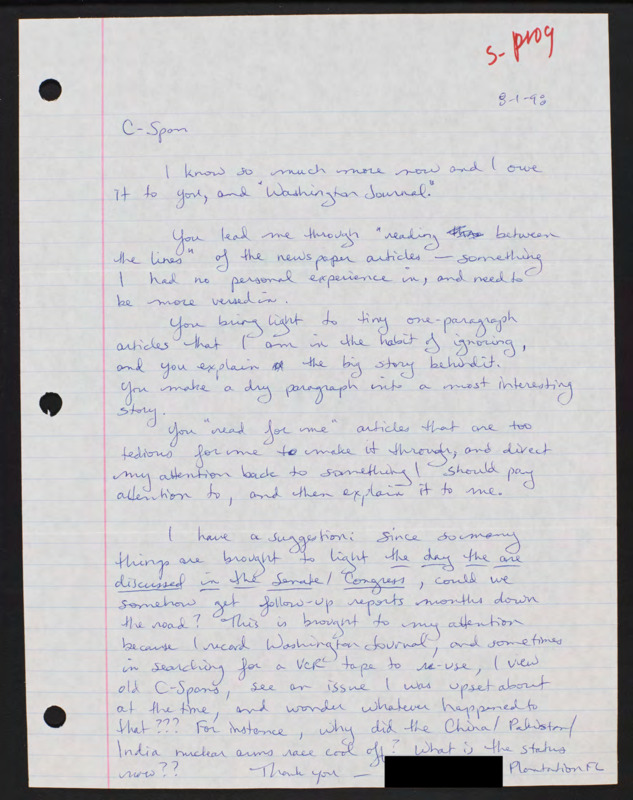 s-prog
8-1-98
C-Span
I know so much more now and I owe
it to you, and "Washington Journal."
You lead me through "reading between
the lines" of the newspaper articles — something
I had no personal experience in, and need to
be more versed in.
You bring light to tiny one-paragraph
articles that I am in the habit of ignoring,
and you explain the big story behind it.
You make a dry paragraph into a most interesting
story.
You "read for me" articles that are too
tedious for me to make it through, and direct
my attention back to something I should pay
attention to, and then explain it to me.
I have a suggestion: since so many
things are brought to light the day the are
discussed in the Senate/Congress, could we
somehow get follow-up reports months down
the road? This is brought to my attention
because I record Washington Journal, and sometimes
in searching for a VCR tape to re-use, I view
old C-Spans, see an issue I was upset about
at the time, and wonder whatever happened to
that??? For instance, why did the China/Pakistan/
India nuclear arms race cool off? What is the status
now?? Thank you — Plantation FL